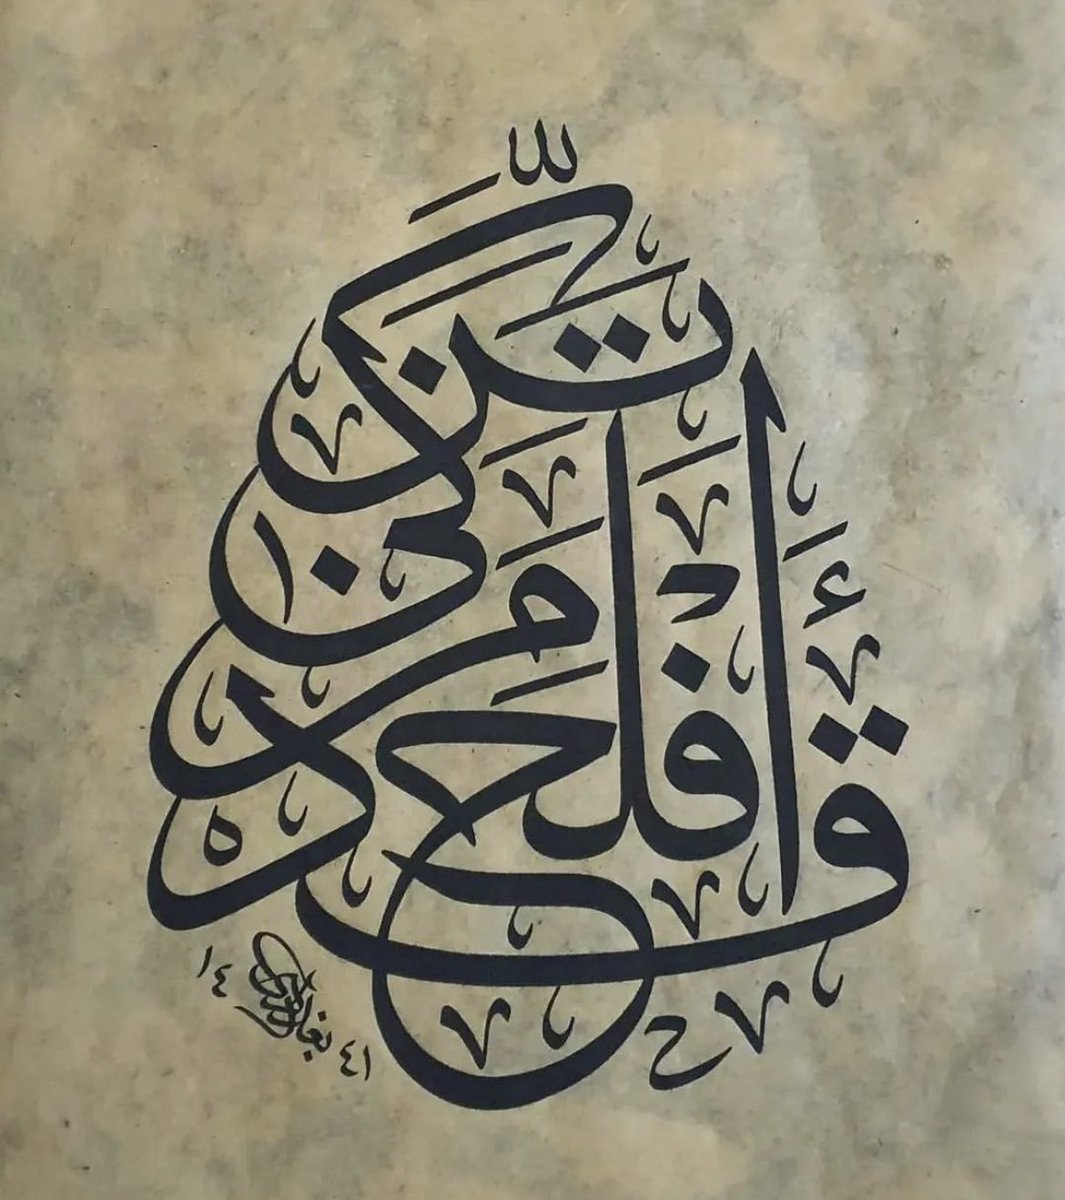 قَدْ أَفْلَحَ مَنْ تَزَكَّىٰ
١٤٤١